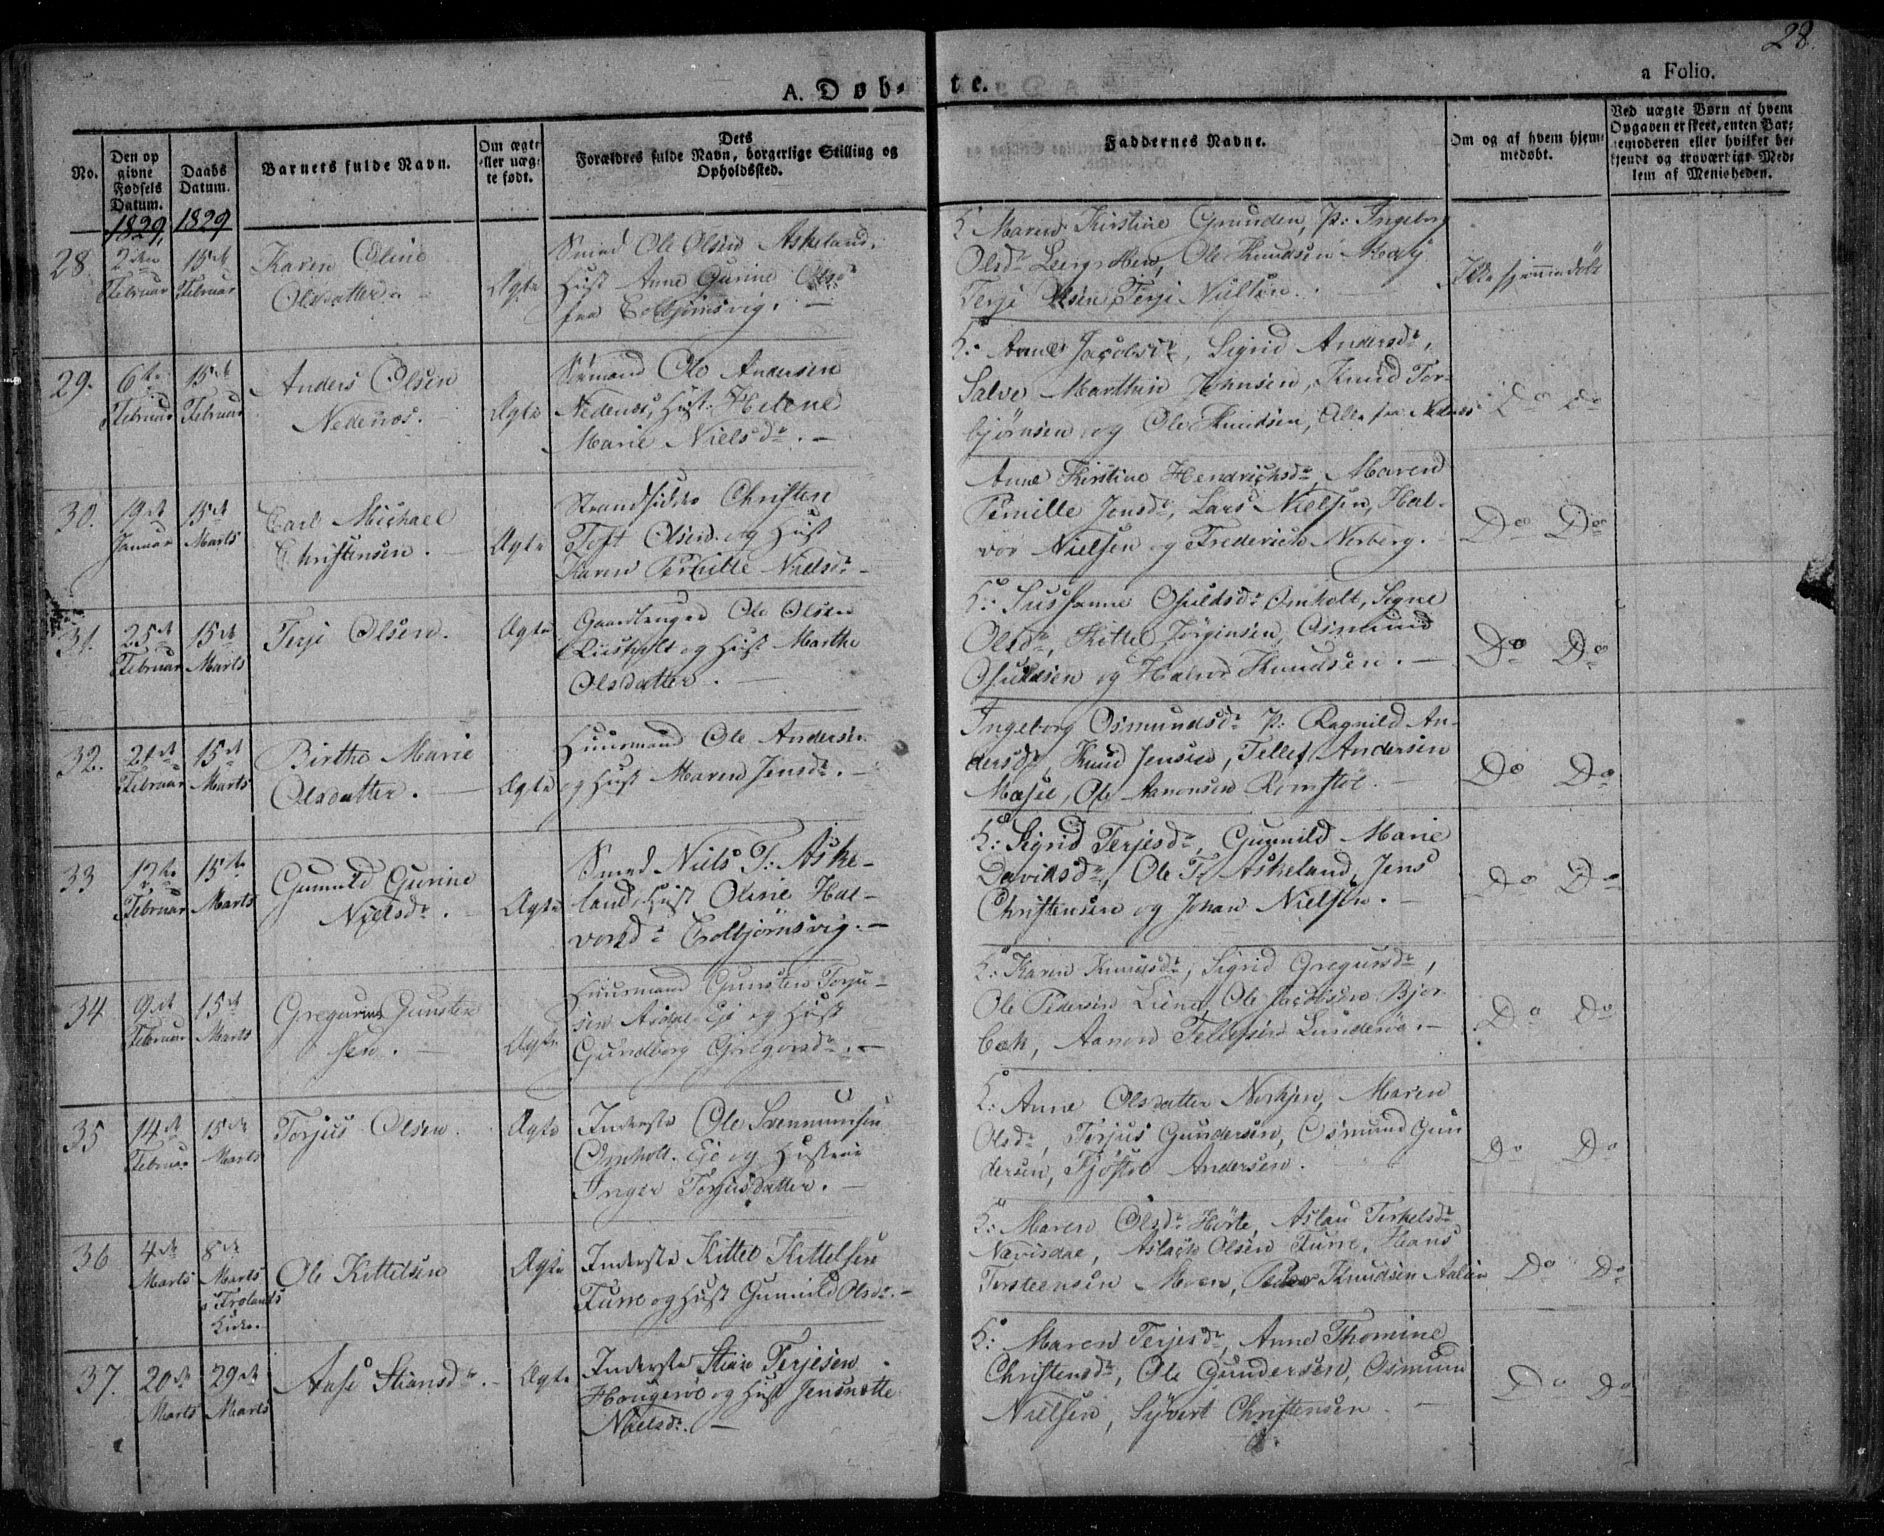 28.
a Folio.
A. Døb- te.
No.
Den op
givne
Fødsels
Datum.
Daabs
Datum.
Barnets fulde Navn.
Om ægte
eller uæg-
te født.
Dets
Forældres fulde Navn, borgerlige Stilling og
Opholdssted.
Faddernes Navne.
Om og af hvem hjem-
medøbt.
Ved uægte Børn af hvem
Opgaven er skeet, enten Bar-
nemoderen eller hvilket be-
kjendt og troværdigt Med-
lem af Menigheden.
1829, 1829
28.
2den
Februar
15de
Februar
Karen Oline
Olsdatter.
Ægte
Smed Ole Olsen Askeland,
Hust Anne Gurine
fra Colbjørnsvig.
K: Maren Kirstine Grunden, P: Ingeborg
Olsdr Ole Knudsen
Terje Olsen, Terje Nielsen.
Ikke hjemmedøbt
29.
6te
Februar
15de
Februar
Anders Olsen
Nedenæs.
Ægte
Sømand Ole Andersen
Nedenæs, Hust. Helene
Marie Nielsdr.
K: Jacobsdr, Sigrid Andersdr,
Salve Marthin Hansen, Knud Tor-
bjørnsen og Ole Knudsen, Alle fra Nedenæs
Do Do
30.
19de
Januar
15de
Marts
Carl Michael
Christensen.
Ægte
Strandsidder Christen
Toft Olsen og Hust
Karen Pernille Nielsdr
Anne Kirstine Hendrichsdr, Maren
Pernille Jensdr, Lars Nielsen, Hal-
vor Nielsen og Frederich Norberg.
Do Do
31.
25de
Februar
15de
Marts
Terje Olsen.
Ægte
Gaardbruger Ole Olsen
og Hust Marthe
Olsdatter.
K: Sussanne Osuldsdr Omholt, Signe
Olsdr, Kittel Jørgensen, Osmund
Osuldsen og Halvor Knudsen.
Do Do
32.
21de
Februar
15de
Marts
Birthe Marie
Olsdatter.
Ægte
Huusmand Ole Andersen
og Hust Maren Jensdr.
Ingeborg Osmundsdr P: Ragnild An-
dersdr, Knud Jensen, Tellef Andersen
Ole Aanonsen Romstøl.
Do Do
33
12te
Februar
15de
Marts
Gunnild Gurine
Nielsdr.
Ægte
Smed Niels T: Aske-
land, Hust Oline Hal-
vorsdr Colbjørnsvig.
K: Sigrid Terjesdr, Gunnild Marie
Davidsdr, Ole T. Askeland, Jens
Christensen og Johan Nielsen.
Do Do
34
9de
Februar
15de
Marts
Gregurius Gunsten
sen.
Ægte
Huusmand Gunsten Torju-
sen Asdal Eje og Hust
Gundborg Gregorsdr.
K: Karen Knudsdr, Sigrid Gregursdr,
Ole Pedersen Ole Jacobsen Bjor-
bæk, Aanon Tellefsen Lunderød.
Do Do
35
14de
Februar
15de
Marts
Torjus Olsen.
Ægte
Inderste Ole Svennumsen
Omholt Eje og Hustrue
Inger Torjusdatter.
K: Anne Olsdatter Maren
Olsdr, Torjus Gundersen, Osmund Gun
dersen, Tjøstol Andersen.
Do Do
36
4de
Marts
8de
Marts
i Frolands
Kirke.
Ole Kittelsen
Ægte
Inderste Kittel Kittelsen
Furre og Hust Gunnild Olsdr.
K: Maren Olsdr Hørte, Aslau Terkelsdr
Nævisdal, Aslach Olsen Furre, Hans
Torsteensen Moen, Peder Knudsen
Do Do
37.
20de
Marts
29de
Marts
Aase Stiansdr.
Ægte
Inderste Stian Terjesen
Haugerøe og Hust Jensnette
Nielsdr.
K: Maren Terjesdr, Anne Thomine
Christensdr, Ole Gundersen, Osmun
Nielsen, Syvert Christensen.
Do Do